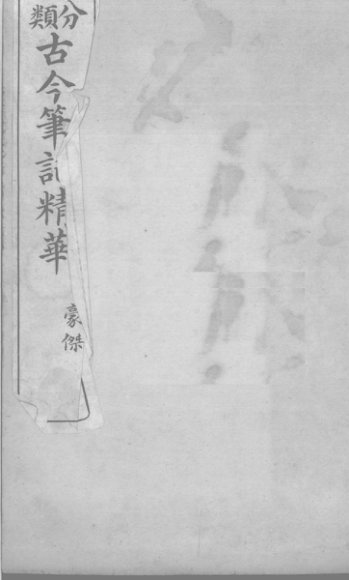 分類
古今筆記精華
豪傑